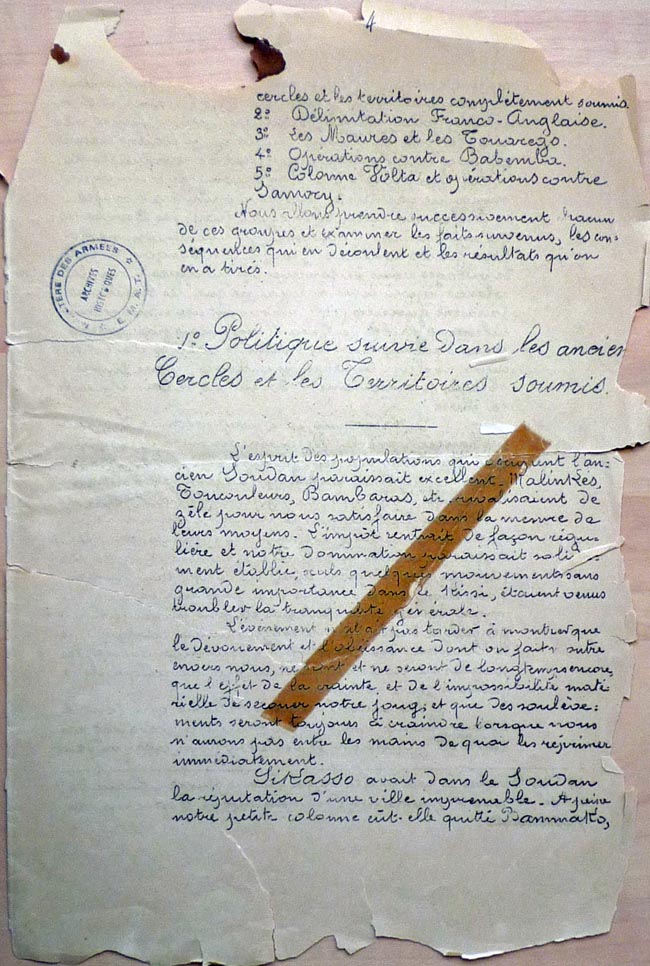 4
cercles et les territoires complètement soumis.
2º Délimitation Franco-Anglaise.
3º Les Maures et les Touaregs.
4º Opérations contre Babemba.
5º Colonne Volta et opérations contre
Samory.
Nous allons prendre successivement chacun
de ces groupes et examiner les faits survenus, les con-
séquences qui en découlent et les résultats qu'on
en a tirés.
TÈRE DES ARMÉES
ARCHIVES
HISTORIQUES
E.M.A.T.
1º Politique suivie dans les ancien
Cercles et les Territoires soumis.
L'esprit des populations qui occupent l'an-
cien Soudan paraissait excellent. Malinkés,
Toucouleurs, Bambaras, etc. rivalisaient de
zèle pour nous satisfaire dans la mesure de
leurs moyens. L'impôt rentrait de façon régu-
lière et notre domination paraissait solide-
ment établie, seuls quelques mouvements sans
grande importance dans le Kissi, étaient venus
troubler la tranquillité générale.
L'évènement n'allait pas tarder à montrer que
le dévouement et l'obéissance dont on fait
envers nous, ne sont et ne seront de longtemps encore,
que l'effet de la crainte, et de l'impossibilité maté-
rielle de secouer notre joug; et que des soulève-
ments seront toujours à craindre lorsque nous
n'aurons pas entre les mains de quoi les réprimer
immédiatement.
Sikasso avait dans le Soudan
la réputation d'une ville imprenable. A peine
notre petite colonne eût-elle quitté Bammako,